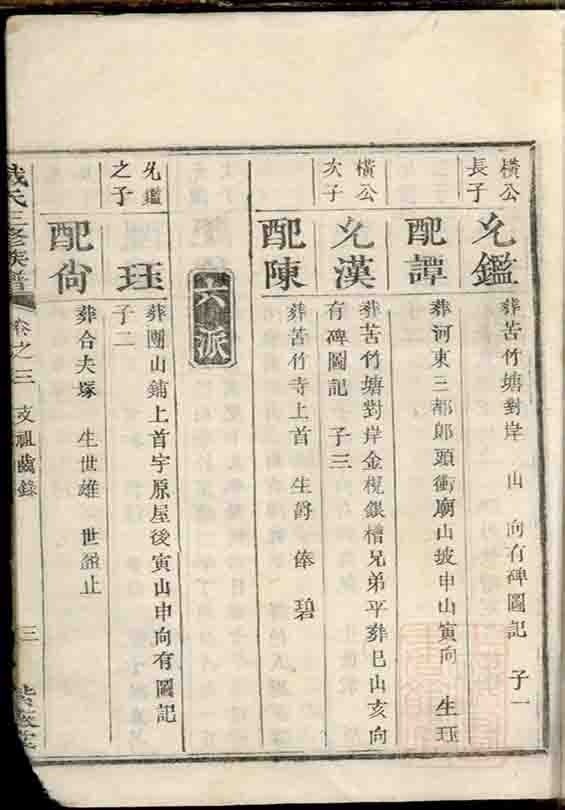 橫公
長子
允鑑
葬苦竹塘對岸 山 向有碑圖記 子一
配譚
葬河東三都郎頭衝廟山披申山寅向 生珏
橫公
次子
允漢
葬苦竹塘對岸金棿銀槽兄弟平葬巳山亥向
有碑圖記 子三
配陳
葬苦竹寺上首 生爵 俸 碧
六派
允鑑
之子
珏
葬團山鋪上首宇原屋後寅山申向有圖記
子二
配尙
葬合夫塚 生世雄 世盈止
氏三修族譜
卷之三 支祖齒錄 三